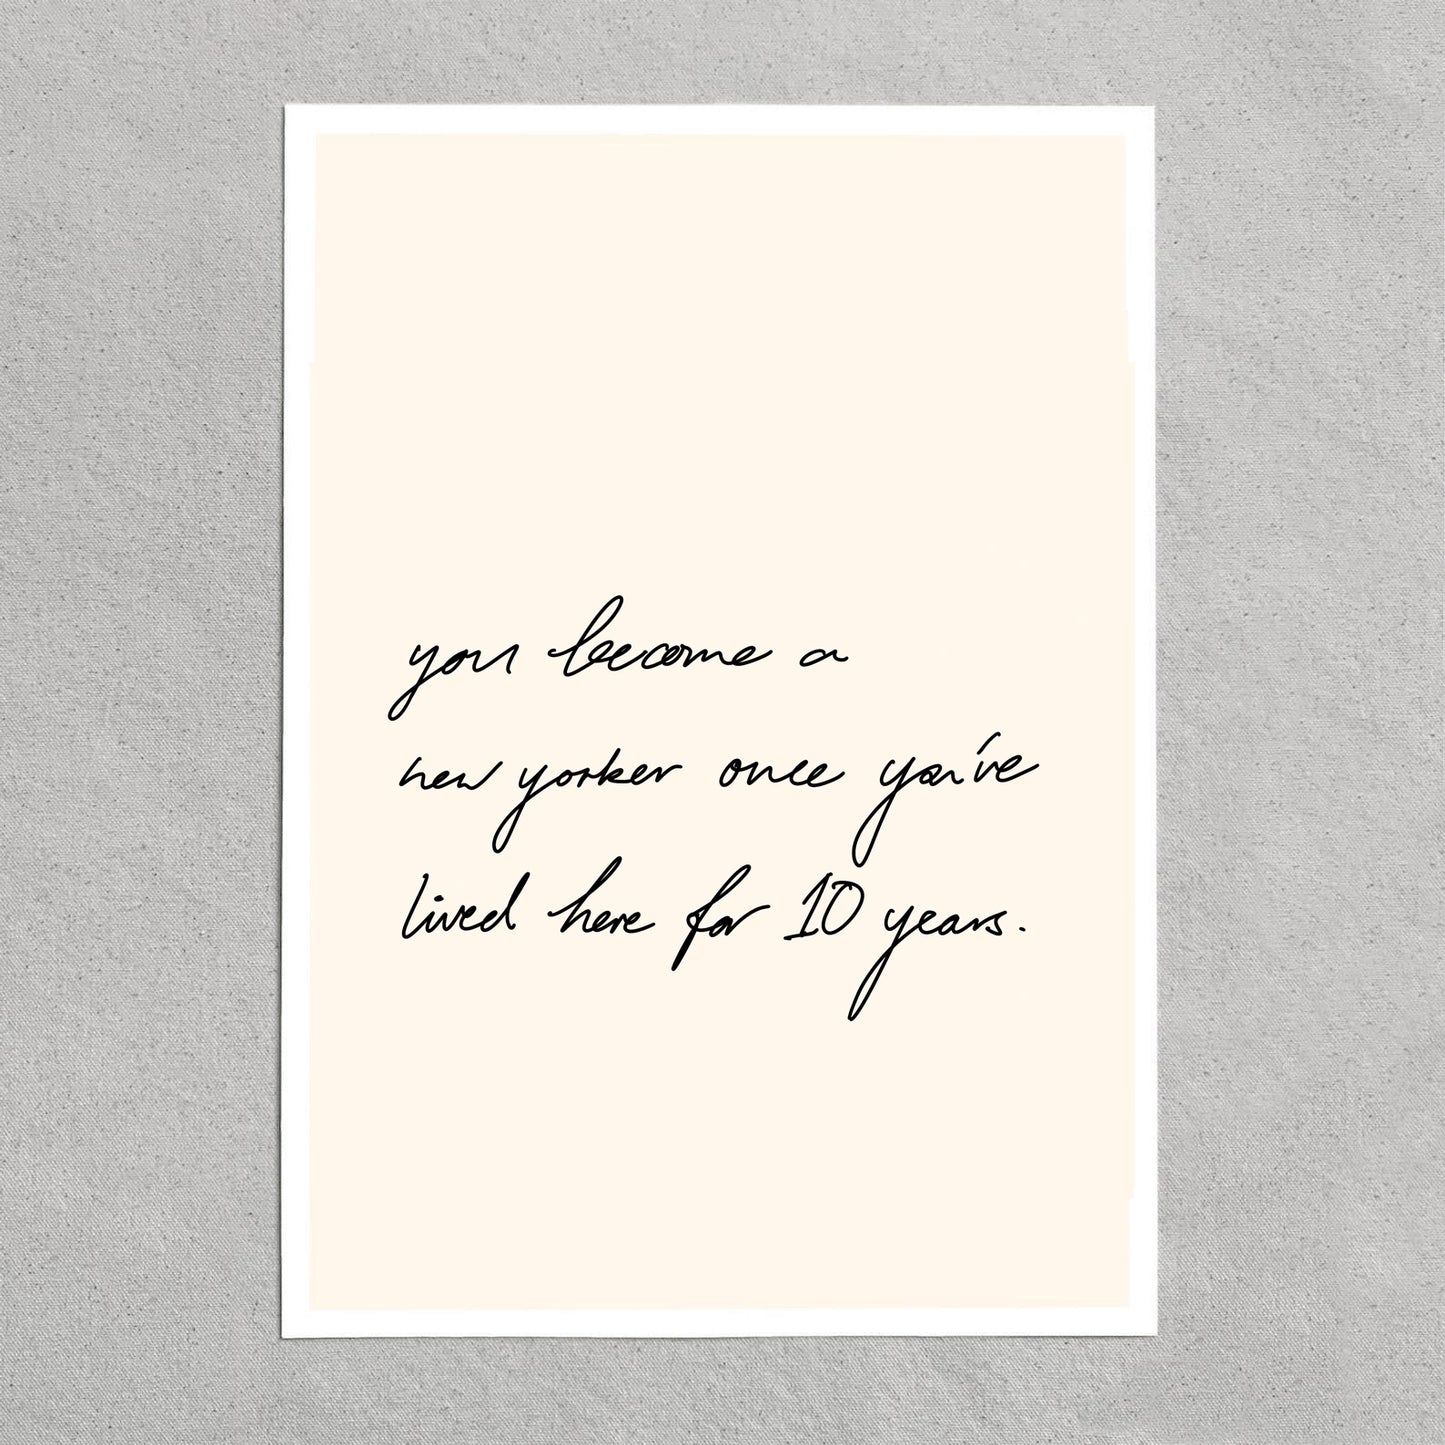 you become a
new yorker once you've
lived here for 10 years.